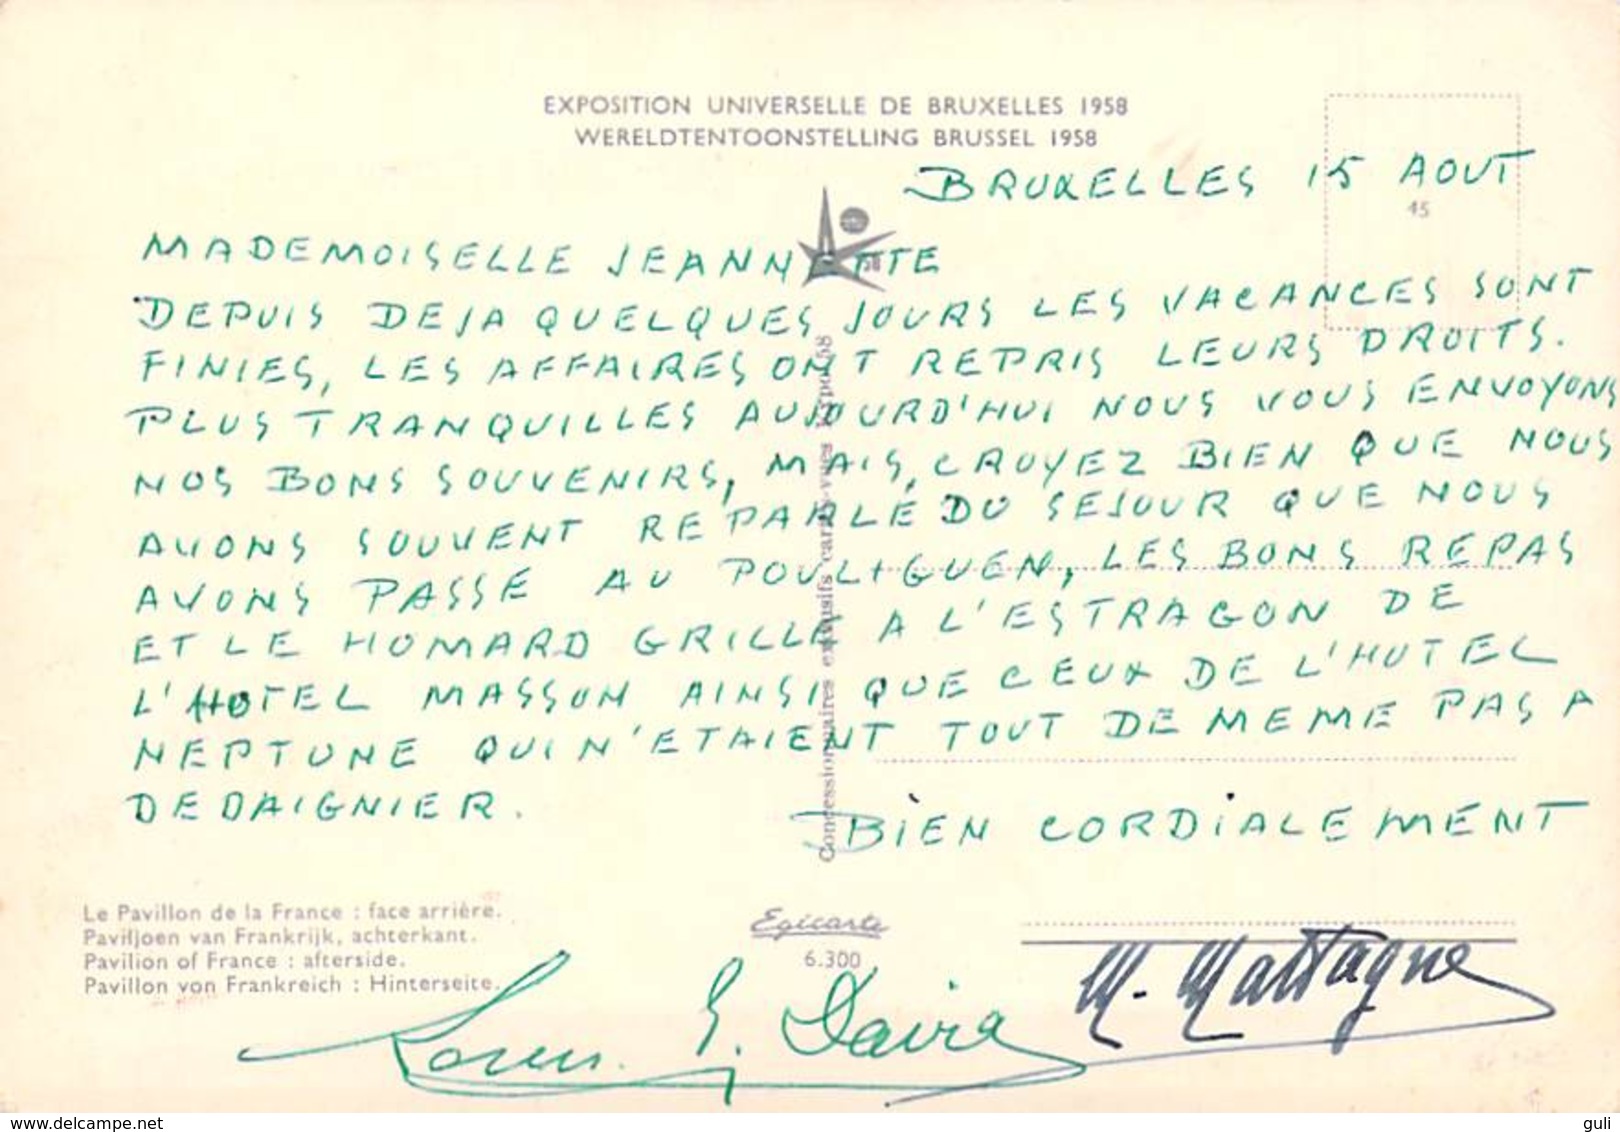 EXPOSITION UNIVERSELLE DE BRUXELLES 1958
WERELDTENTOONSTELLING BRUSSEL 1958
BRUXELLES 15 AOUT
45
58
MADEMOISELLE JEANNETTE
DEPUIS DEJA QUELQUES JOURS LES VACANCES SONT
FINIES, LES AFFAIRES ONT REPRIS LEURS DROITS.
PLUS TRANQUILLES AUJOURD'HUI NOUS VOUS ENVOYONS
NOS BONS SOUVENIRS, MAIS, CROYEZ BIEN QUE NOUS
AVONS SOUVENT REPARLÉ DU SEJOUR QUE NOUS
AVONS PASSÉ AU POULIGUEN, LES BONS REPAS
ET LE HOMARD GRILLE A L'ESTRAGON DE
L'HOTEL MASSON AINSI QUE CEUX DE L'HOTEL
NEPTUNE QUI N'ETAIENT TOUT DE MEME PAS A
DEDAIGNIER.
BIEN CORDIALEMENT
Concessionnaires exclusifs cartes-vues Expo 58
Le Pavillon de la France : face arrière.
Paviljoen van Frankrijk, achterkant.
Pavilion of France : afterside.
Pavillon von Frankreich : Hinterseite.
Egicarte
6.300
M. Mattagne
www.delcampe.net
guli